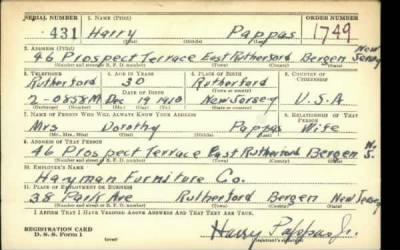 SERIAL NUMBER 1. NAME (Print) ORDER NUMBER
431 Harry Pappas 1749
(First) (Middle) (Last)
2. ADDRESS (Print) New
46 Prospect Terrace East Rutherford Bergen Jersey
(Number and street or R. F. D. number) (Town) (County) (State)
3. TELEPHONE 4. AGE IN YEARS 5. PLACE OF BIRTH 6. COUNTRY OF CITIZENSHIP
Rutherford 30 Rutherford
DATE OF BIRTH
2-0858M Dec 19 1910 New Jersey U.S.A
(Exchange) (Number) (Mo.) (Day) (Yr.) (State or country)
7. NAME OF PERSON WHO WILL ALWAYS KNOW YOUR ADDRESS 8. RELATIONSHIP OF THAT PERSON
Mrs Dorothy Pappas Wife
(Mr., Mrs., Miss) (First) (Middle) (Last)
9. ADDRESS OF THAT PERSON N.
46 Prospect Terrace East Rutherford Bergen J.
(Number and street or R. F. D. number) (Town) (County) (State)
10. EMPLOYER'S NAME
Hayman Furniture Co.
11. PLACE OF EMPLOYMENT OR BUSINESS
38 Park Ave Rutherford Bergen New Jersey
(Number and street or R. F. D. number) (Town) (County) (State)
I AFFIRM THAT I HAVE VERIFIED ABOVE ANSWERS AND THAT THEY ARE TRUE.
REGISTRATION CARD
D. S. S. Form 1 (over) Harry Pappas Jr.
(Registrant's signature)